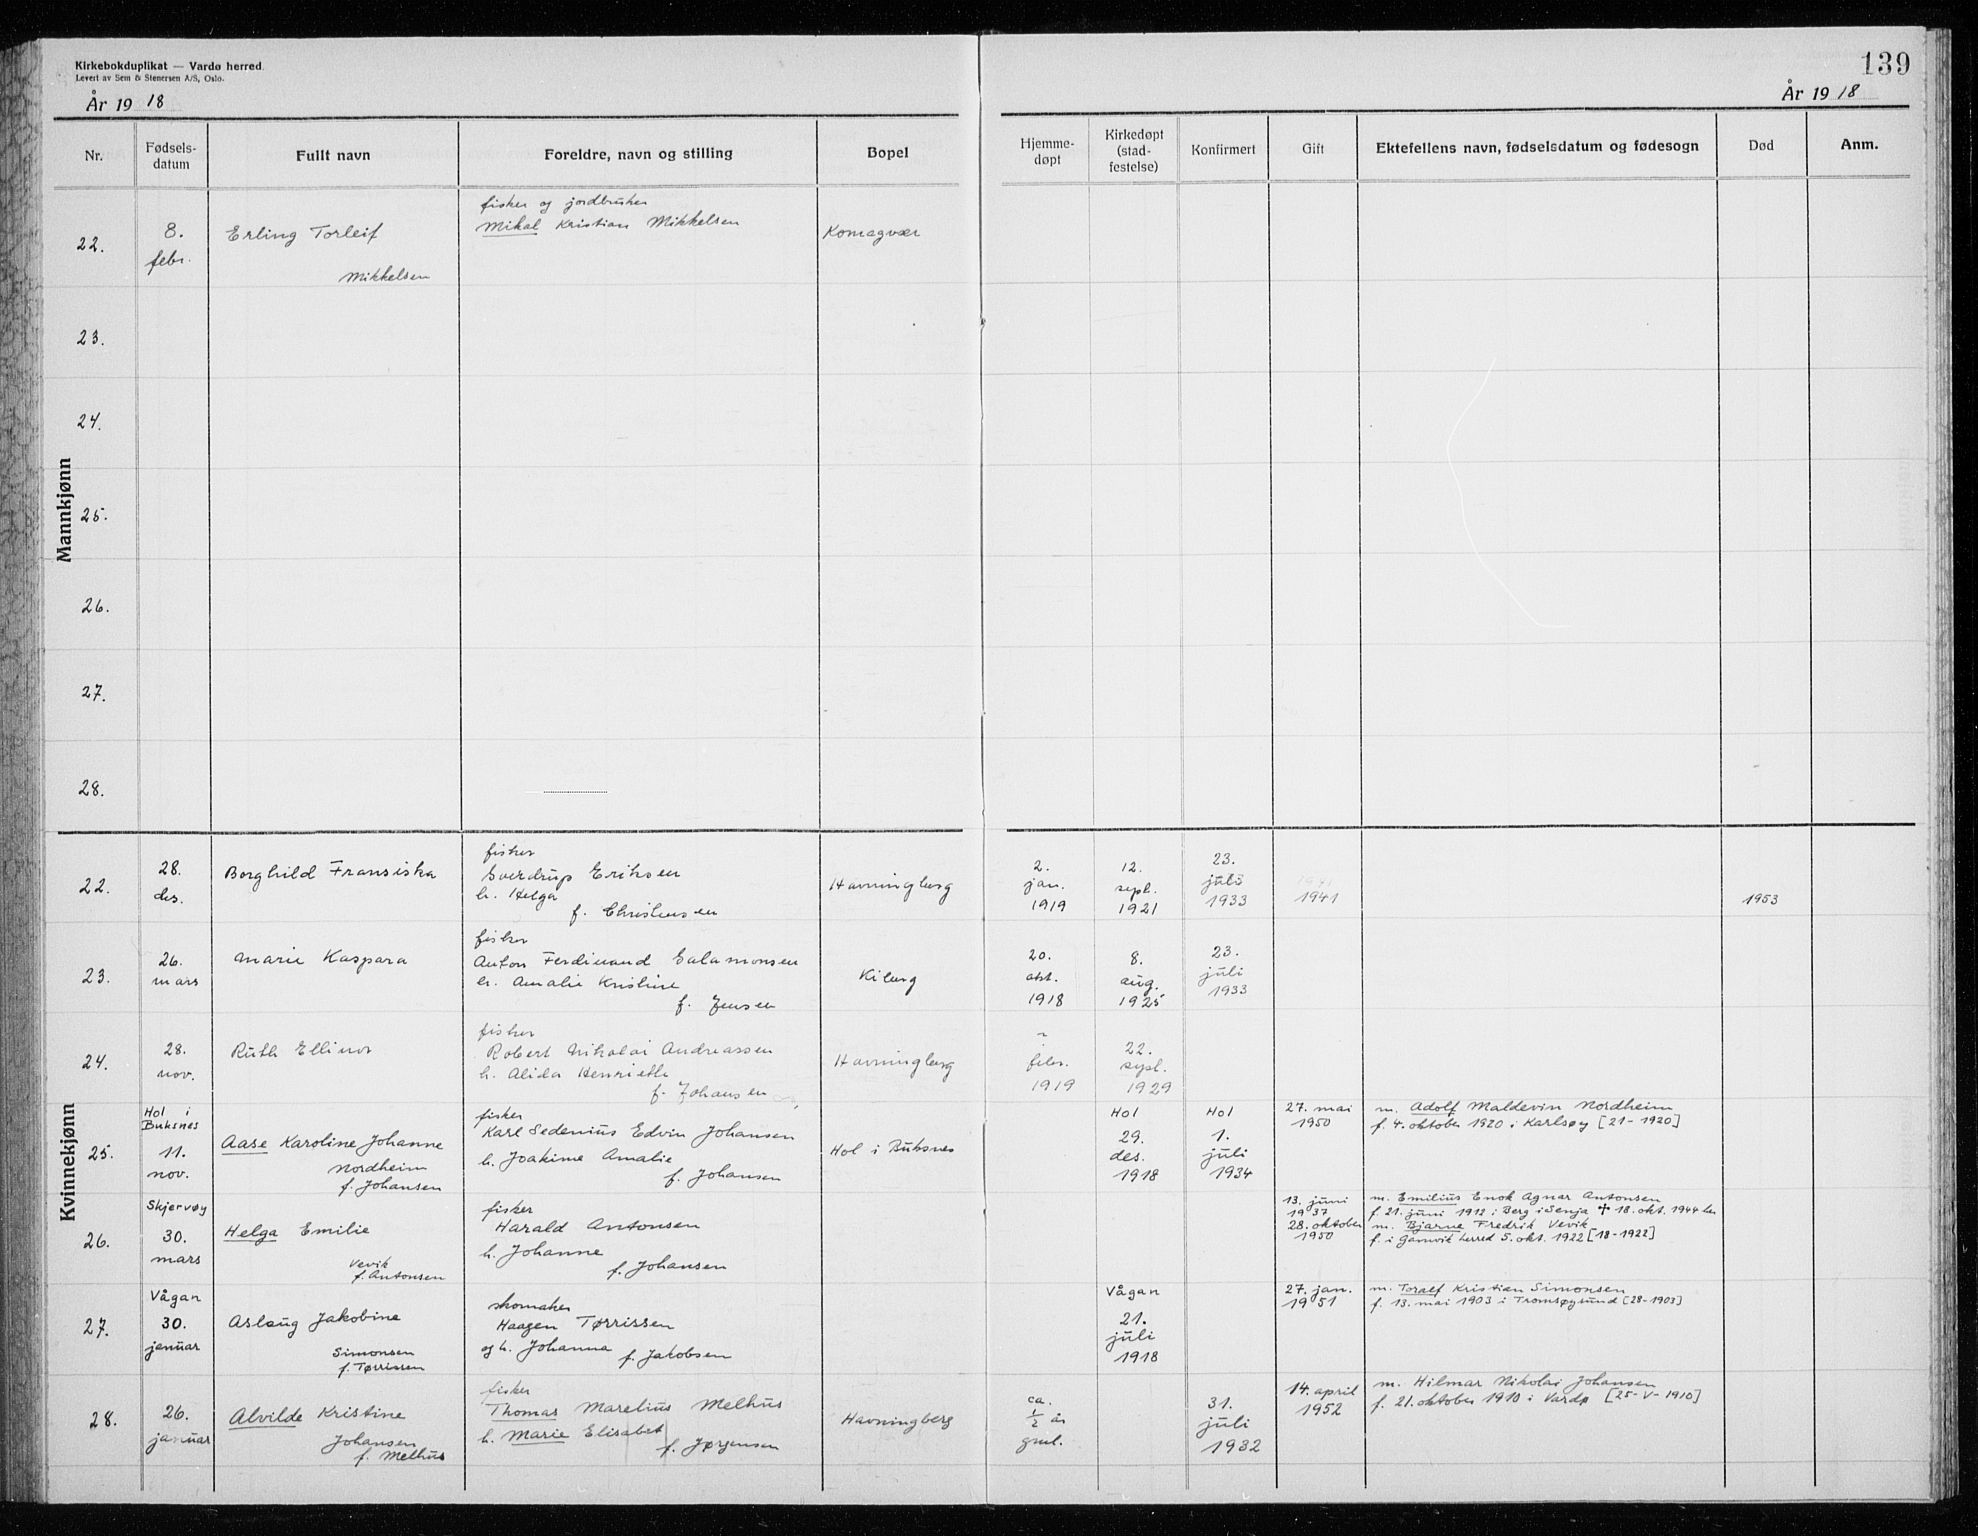 Kirkebokduplikat — Vardø herred.
Levert av Sem & Stenersen A/S, Oslo.
År 1918
139
År 1918
Nr.
Fødsels-
datum
Fullt navn
Foreldre, navn og stilling
Bopel
Hjemme-
døpt
Kirkedøpt
(stad-
festelse)
Konfirmert
Gift
Ektefellens navn, fødselsdatum og fødesogn
Død
Anm.
Mannkjønn
22.
8.
febr.
Erling Torleif
Mikkelsen
fisker og jordbruker
Mikal Kristian Mikkelsen
Komagvær
23.
24.
25.
26.
27.
28.
Kvinnekjønn
22.
28.
des.
Borghild Fransiska
fisker
Sverdrup Eriksen
h. Helga
f. Christensen
Havningberg
2.
jan.
1919
12.
sept.
1921
23.
juli
1933
1941
1953
23.
26.
mars
Marie Kaspara
fisker
Anton Ferdinand Salamonsen
h. Amalie Kristine
f. Jensen
Kiberg
20.
okt.
1918
8.
aug.
1925
23.
juli
1933
24.
28.
nov.
Ruth Ellinor
fisker
Robert Nikolai Andreassen
h. Alida Henriette
f. Johansen
Havningberg
febr.
1919
22.
sept.
1929
25.
Hol i
Buksnes
11.
nov.
Aase Karoline Johanne
Nordheim
f. Johansen
fisker
Karl Sedenius Edvin Johansen
h. Joakime Amalie
f. Johansen
Hol i Buksnes
Hol
29.
des.
1918
Hol
1.
juli
1934
27. mai
1950
m. Adolf Maldevin Nordheim
f. 4. oktober 1920 i Karlsøy [21-1920]
26.
Skjervøy
30.
mars
Helga Emilie
Vevik
f. Antonsen
fisker
Harald Antonsen
h. Johanne
f. Johansen
13. juni
1937
28. oktober
1950
m. Emilius Enok Agnar Antonsen
f. 21. juni 1912 i Berg i Senja ✝ 18. okt. 1944 her
m. Bjarne Fredrik Vevik
f. i Gamvik herred 5. okt. 1922 [18-1922]
27.
Vågan
30.
januar
Aslaug Jakobine
Simonsen
f. Tørrissen
skomaker
Haagen Tørrissen
og h. Johanna f. Jakobsen
Vågan
21.
juli
1918
27. jan.
1951
m. Toralf Kristian Simonsen
f. 13. mai 1903 i Tromsøysund [28-1903]
28.
26.
januar
Alvilde Kristine
Johansen
f. Melhus
fisker
Thomas Marelius Melhus
h. Marie Elisabet
f. Jørgensen
Havningberg
ca.
1/2 år
gml.
31.
juli
1932
14. april
1952
m. Hilmar Nikolai Johansen
f. 21. oktober 1910 i Vardø [25-V-1910]